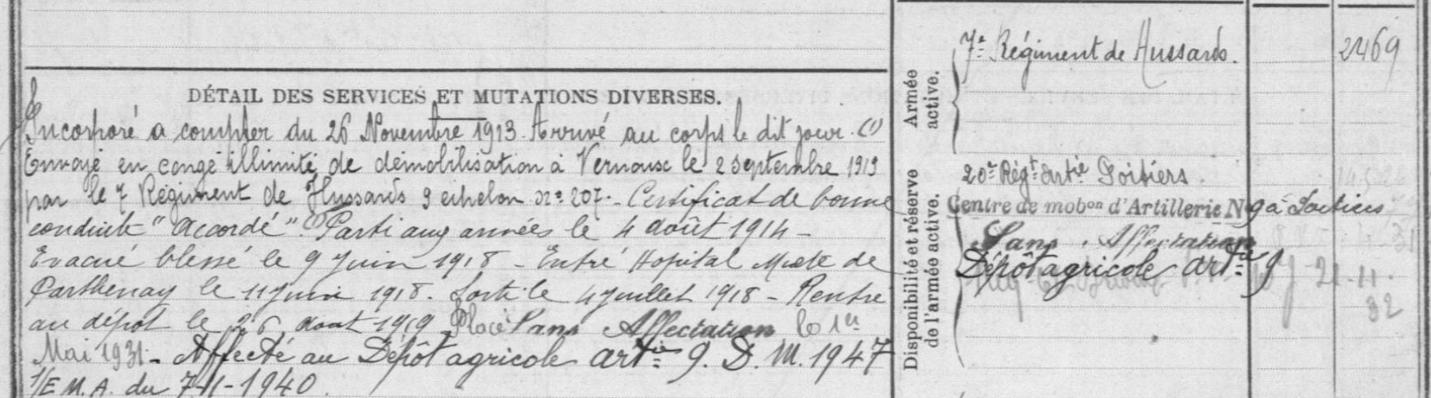 DÉTAIL DES SERVICES ET MUTATIONS DIVERSES.
Incorporé à compter du 26 Novembre 1913. Arrivé au corps le dit jour. (1)
Envoyé en congé illimité de démobilisation à Vernoux le 2 septembre 1919
par le 7 Régiment de Hussards 9 echelon n° 207. - Certificat de bonne
conduite "Accordé". Parti aux armées le 4 août 1914 -
Evacué blessé le 9 Juin 1918 - Entré Hopital Mixte de
Parthenay le 11 juin 1918. Sorti le 4 juillet 1918 - Rentre
au dépôt le 26 août 1919. Placé Sans Affectation le 1er
Mai 1931 - Affecté au Dépôt agricole artie 9. D. M. 1947
1/E.M.A. du 7-11-1940.
Armée active.
7e Régiment de Hussards. 2469
Disponibilité et réserve de l'armée active.
20e Régt Artie Poitiers.
Centre de mobon d'Artillerie N° 9 à Poitiers
Sans Affectation 31
Dépôt agricole artie 9 21.11.
32